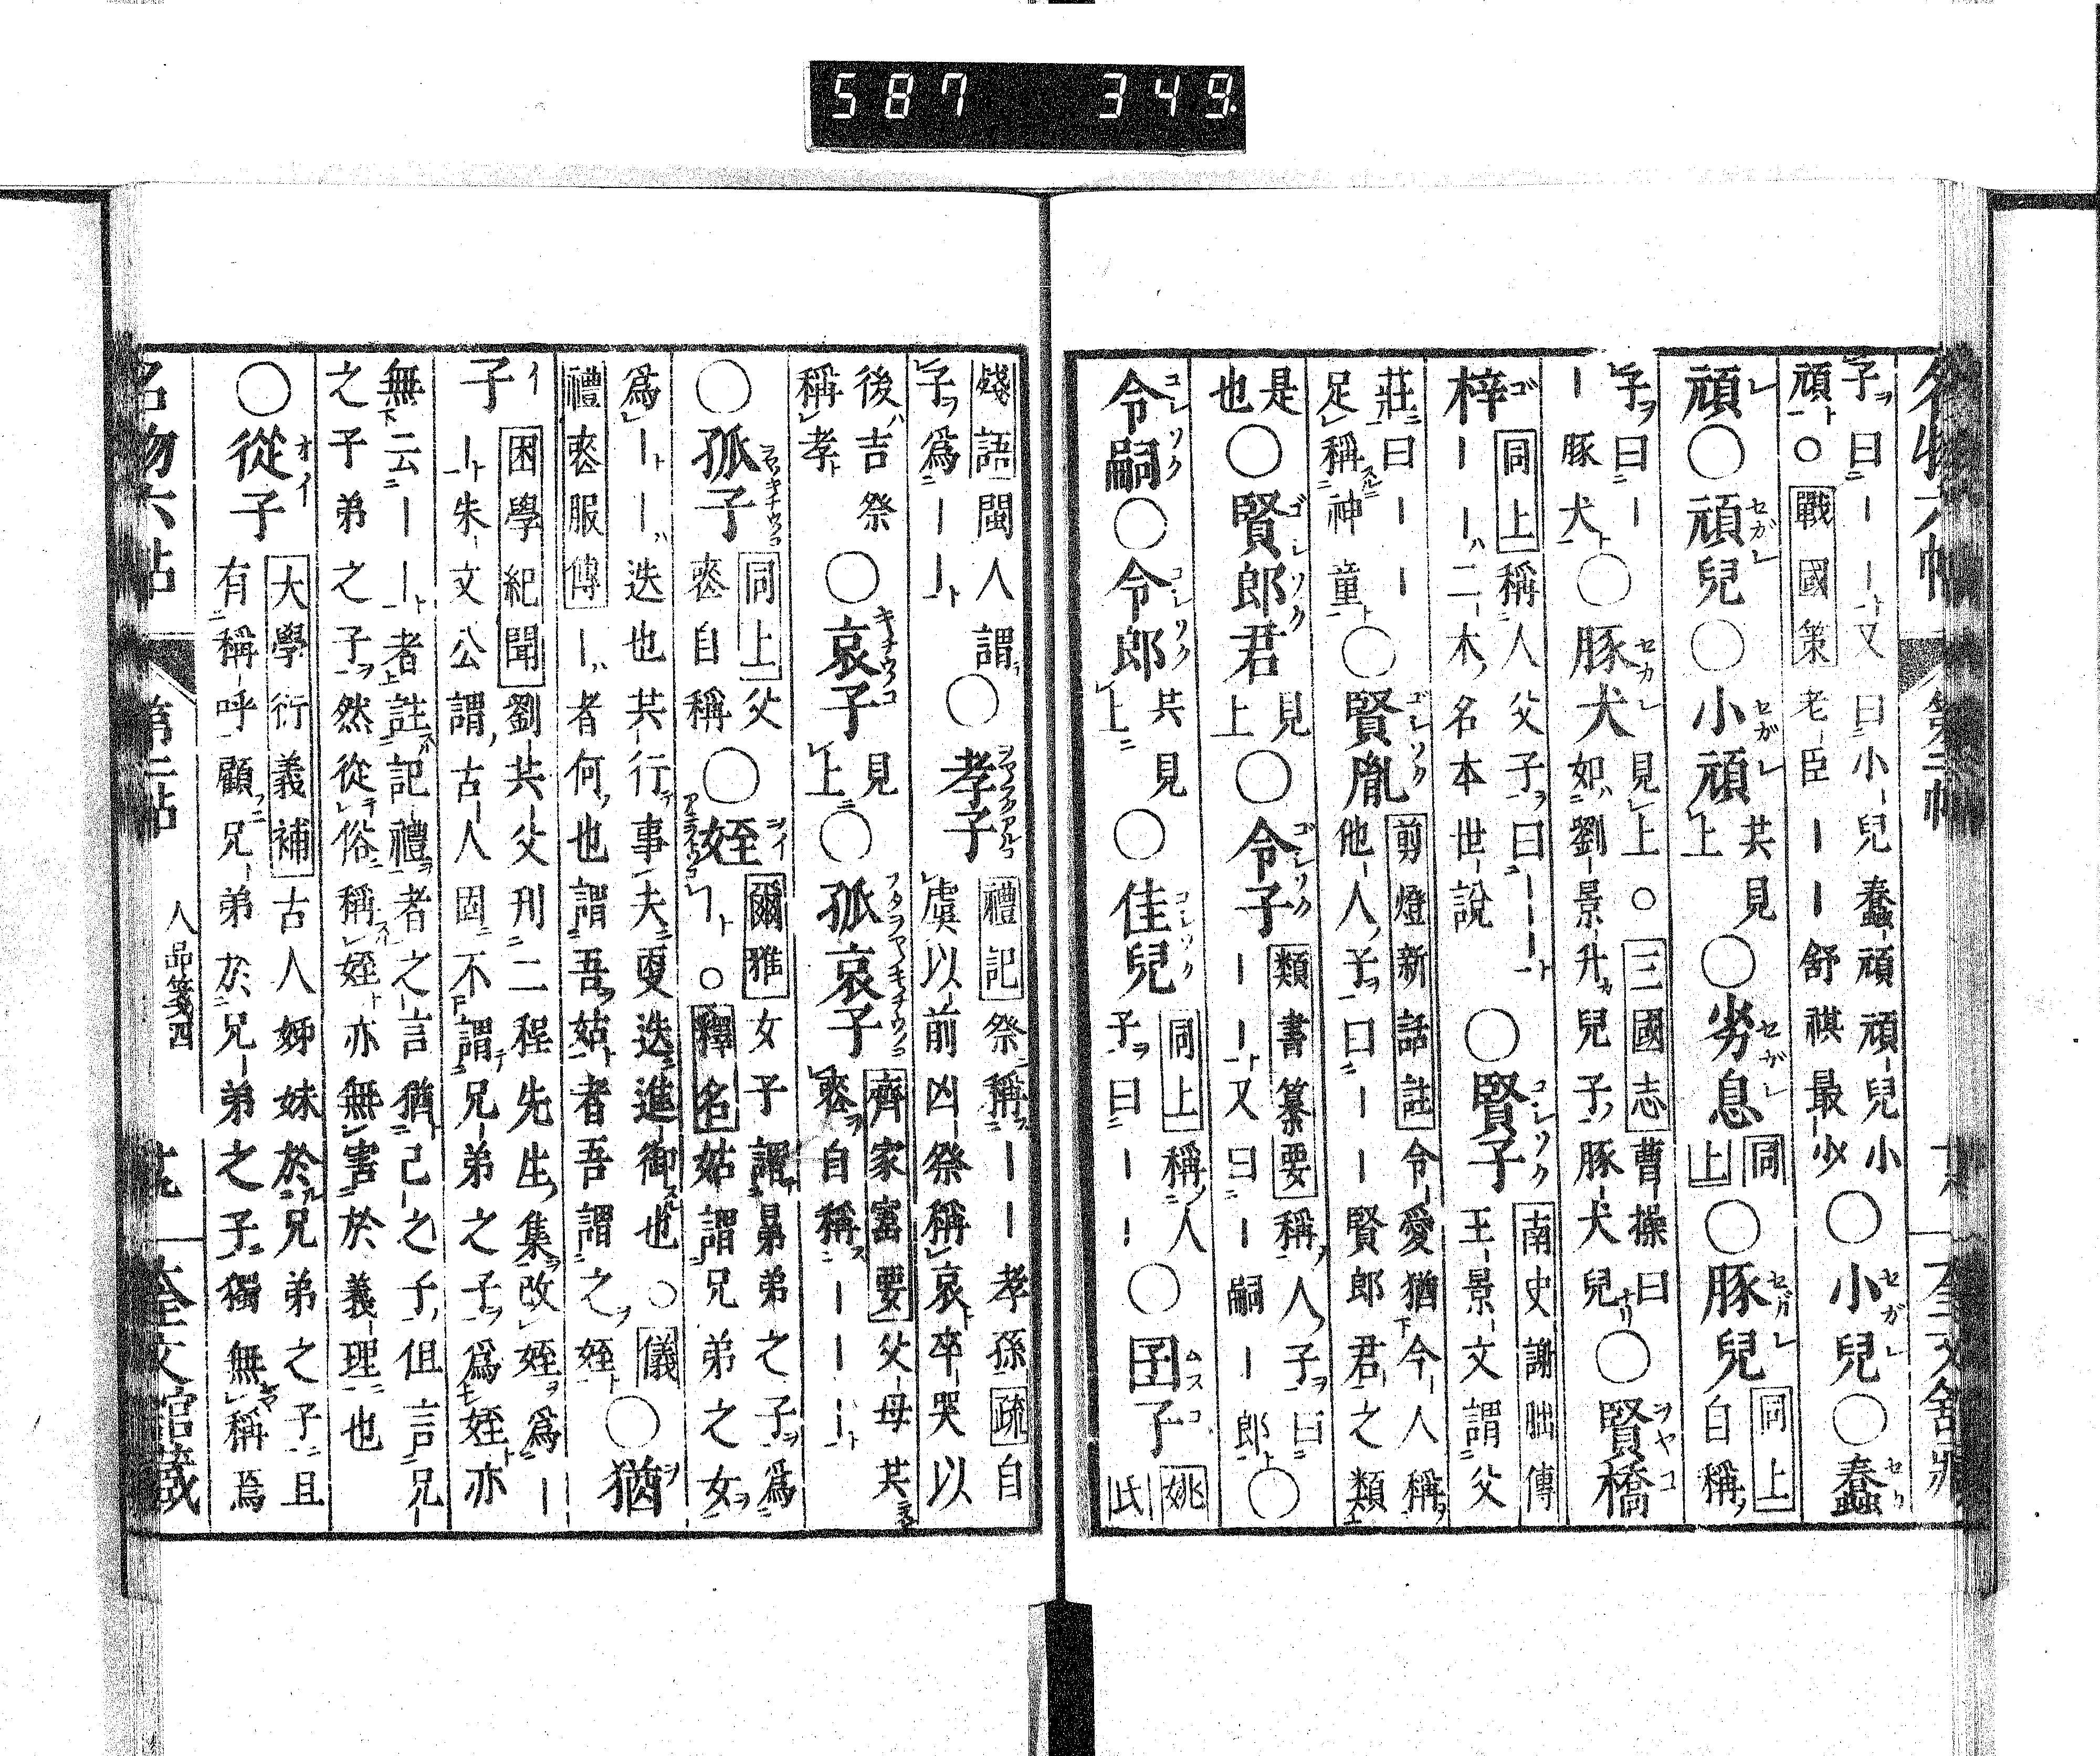 子曰｜｜又曰小兒蠢頑頑兒小
頑○戰國策老臣｜｜舒祺最少
○小兒○蠢
頑○頑兒○小頑
共見
上
○劣息
同
上
○豚兒
同上
自稱
子曰｜
｜豚犬
○豚犬
見上○三國志曹操曰
如劉景升兒子豚犬兒
○賢橋
梓
同上稱人父子曰｜｜
｜｜二木名本世說
○賢子
南史謝朏傳
王景文謂父
莊曰｜｜
足稱神童
○賢胤
剪燈新話註令愛猶今人稱
他人子曰｜｜賢郎君之類
是
也
○賢郎君
見
上
○令子
類書纂要稱人子曰
｜｜又曰｜嗣｜郎
○
令嗣○令郎
共見
上
○佳兒
同上稱人
子曰｜｜
○囝子
姚
氏
殘語閩人謂
子爲｜｜
○孝子
禮記祭稱｜｜孝孫疏自
虞以前凶祭稱哀卒哭以
後吉祭
稱孝
○哀子
見
上
○孤哀子
齊家寶要父母共
䘮自稱｜｜｜
○孤子
同上父
䘮自稱
○姪
爾雅女子謂晜弟之子爲
｜○釋名姑謂兄弟之女
爲｜｜迭也共行事夫更迭進御也○儀
禮䘮服傳｜者何也謂吾姑者吾謂之姪
○猶
子
困學紀聞劉共父刊二程先生集改姪爲｜
｜朱文公謂古人固不謂兄弟之子爲姪亦
無云｜｜者註記禮者之言猶己之子但言兄
之子弟之子然從俗稱姪亦無害於義理也
○從子
大學衍義補古人姊妹於兄弟之子且
有稱呼顧兄弟於兄弟之子獨無稱焉
名物六帖 第二帖 人品箋四 奎文舘藏
587 349